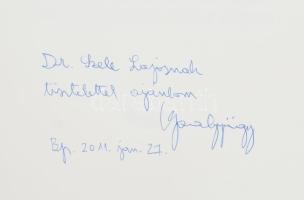 Dr. Szele Lajosnak
tisztelettel ajánlom
Bp. 2011. jan. 27.